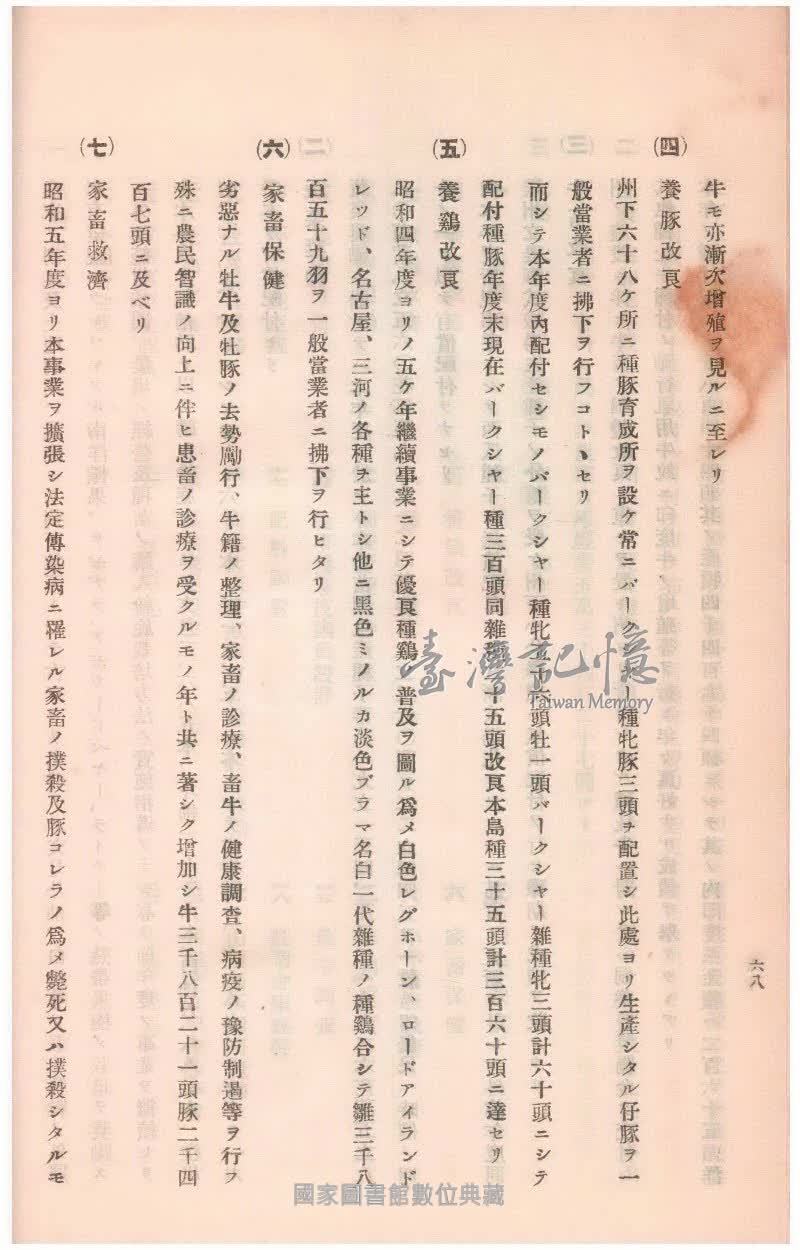 牛モ亦漸次增殖ヲ見ルニ至レリ
(四) 養豚改良
州下六十八ケ所ニ種豚育成所ヲ設ケ常ニバークシャー種牝豚三頭ヲ配置シ此處ヨリ生產シタル仔豚ヲ一
般當業者ニ拂下ヲ行フコトヽセリ
而シテ本年度內配付セシモノバークシャー種牝五十六頭牡一頭バークシャー雜種牝三頭計六十頭ニシテ
配付種豚年度末現在バークシャー種三百頭同雜種二十五頭改良本島種三十五頭計三百六十頭ニ達セリ
(五) 養鷄改良
昭和四年度ヨリノ五ケ年繼續事業ニシテ優良種鷄ノ普及ヲ圖ル爲メ白色レグホーン、ロードアイランド
レッド、名古屋、三河ノ各種ヲ主トシ他ニ黑色ミノルカ淡色ブラマ名白一代雜種ノ種鷄合シテ雛三千八
百五十九羽ヲ一般當業者ニ拂下ヲ行ヒタリ
(六) 家畜保健
劣惡ナル牡牛及牡豚ノ去勢勵行、牛籍ノ整理、家畜ノ診療、畜牛ノ健康調査、病疫ノ豫防制遏等ヲ行フ
殊ニ農民智識ノ向上ニ伴ヒ患畜ノ診療ヲ受クルモノ年ト共ニ著シク增加シ牛三千八百二十一頭豚二千四
百七頭ニ及ベリ
(七) 家畜救濟
昭和五年度ヨリ本事業ヲ擴張シ法定傳染病ニ罹レル家畜ノ撲殺及豚コレラノ爲メ斃死又ハ撲殺シタルモ
六八
臺灣記憶
Taiwan Memory
國家圖書館數位典藏